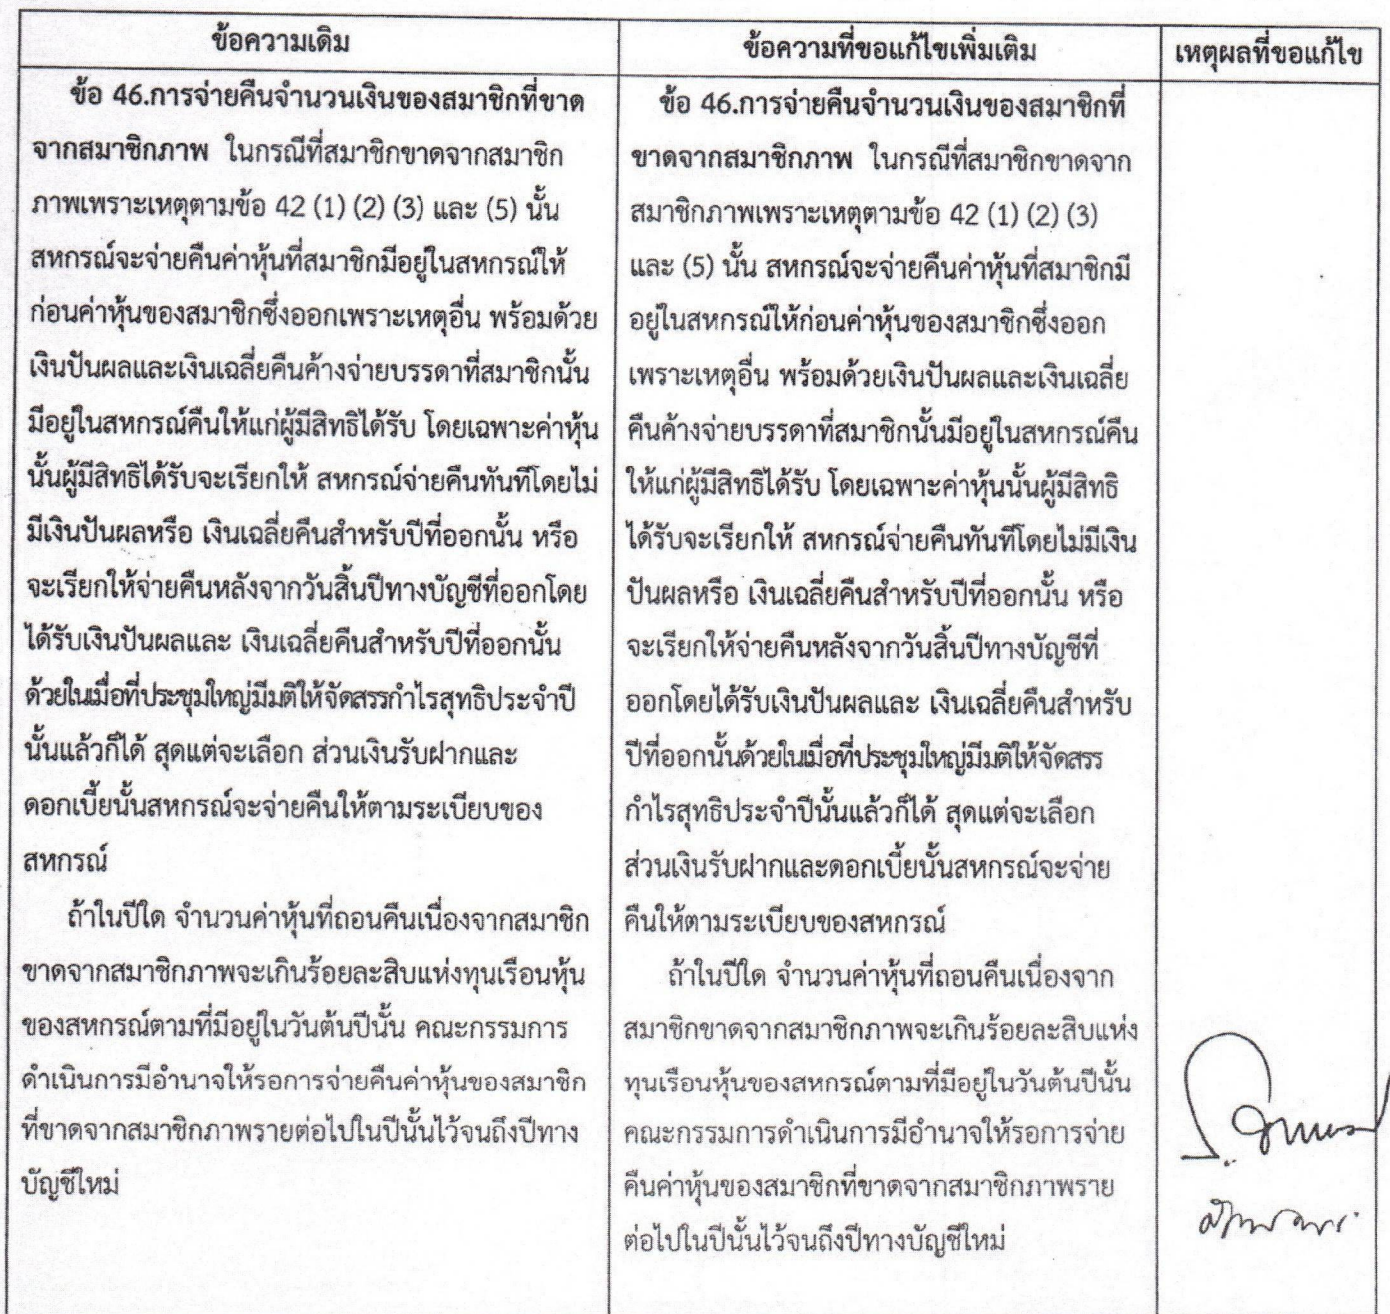 ข้อความเดิม
ข้อความที่ขอแก้ไขเพิ่มเติม
เหตุผลที่ขอแก้ไข
ข้อ 46.การจ่ายคืนจำนวนเงินของสมาชิกที่ขาด
จากสมาชิกภาพ ในกรณีที่สมาชิกขาดจากสมาชิก
ภาพเพราะเหตุตามข้อ 42 (1) (2) (3) และ (5) นั้น
สหกรณ์จะจ่ายคืนค่าหุ้นที่สมาชิกมีอยู่ในสหกรณ์ให้
ก่อนค่าหุ้นของสมาชิกซึ่งออกเพราะเหตุอื่น พร้อมด้วย
เงินปันผลและเงินเฉลี่ยคืนค้างจ่ายบรรดาที่สมาชิกนั้น
มีอยู่ในสหกรณ์คืนให้แก่ผู้มีสิทธิได้รับ โดยเฉพาะค่าหุ้น
นั้นผู้มีสิทธิได้รับจะเรียกให้ สหกรณ์จ่ายคืนทันทีโดยไม่
มีเงินปันผลหรือ เงินเฉลี่ยคืนสำหรับปีที่ออกนั้น หรือ
จะเรียกให้จ่ายคืนหลังจากวันสิ้นปีทางบัญชีที่ออกโดย
ได้รับเงินปันผลและ เงินเฉลี่ยคืนสำหรับปีที่ออกนั้น
ด้วยในเมื่อที่ประชุมใหญ่มีมติให้จัดสรรกำไรสุทธิประจำปี
นั้นแล้วก็ได้ สุดแต่จะเลือก ส่วนเงินรับฝากและ
ดอกเบี้ยนั้นสหกรณ์จะจ่ายคืนให้ตามระเบียบของ
สหกรณ์
ถ้าในปีใด จำนวนค่าหุ้นที่ถอนคืนเนื่องจากสมาชิก
ขาดจากสมาชิกภาพจะเกินร้อยละสิบแห่งทุนเรือนหุ้น
ของสหกรณ์ตามที่มีอยู่ในวันต้นปีนั้น คณะกรรมการ
ดำเนินการมีอำนาจให้รอการจ่ายคืนค่าหุ้นของสมาชิก
ที่ขาดจากสมาชิกภาพรายต่อไปในปีนั้นไว้จนถึงปีทาง
บัญชีใหม่
ข้อ 46.การจ่ายคืนจำนวนเงินของสมาชิกที่
ขาดจากสมาชิกภาพ ในกรณีที่สมาชิกขาดจาก
สมาชิกภาพเพราะเหตุตามข้อ 42 (1) (2) (3)
และ (5) นั้น สหกรณ์จะจ่ายคืนค่าหุ้นที่สมาชิกมี
อยู่ในสหกรณ์ให้ก่อนค่าหุ้นของสมาชิกซึ่งออก
เพราะเหตุอื่น พร้อมด้วยเงินปันผลและเงินเฉลี่ย
คืนค้างจ่ายบรรดาที่สมาชิกนั้นมีอยู่ในสหกรณ์คืน
ให้แก่ผู้มีสิทธิได้รับ โดยเฉพาะค่าหุ้นนั้นผู้มีสิทธิ
ได้รับจะเรียกให้ สหกรณ์จ่ายคืนทันทีโดยไม่มีเงิน
ปันผลหรือ เงินเฉลี่ยคืนสำหรับปีที่ออกนั้น หรือ
จะเรียกให้จ่ายคืนหลังจากวันสิ้นปีทางบัญชีที่
ออกโดยได้รับเงินปันผลและ เงินเฉลี่ยคืนสำหรับ
ปีที่ออกนั้นด้วยในเมื่อที่ประชุมใหญ่มีมติให้จัดสรร
กำไรสุทธิประจำปีนั้นแล้วก็ได้ สุดแต่จะเลือก
ส่วนเงินรับฝากและดอกเบี้ยนั้นสหกรณ์จะจ่าย
คืนให้ตามระเบียบของสหกรณ์
ถ้าในปีใด จำนวนค่าหุ้นที่ถอนคืนเนื่องจาก
สมาชิกขาดจากสมาชิกภาพจะเกินร้อยละสิบแห่ง
ทุนเรือนหุ้นของสหกรณ์ตามที่มีอยู่ในวันต้นปีนั้น
คณะกรรมการดำเนินการมีอำนาจให้รอการจ่าย
คืนค่าหุ้นของสมาชิกที่ขาดจากสมาชิกภาพราย
ต่อไปในปีนั้นไว้จนถึงปีทางบัญชีใหม่